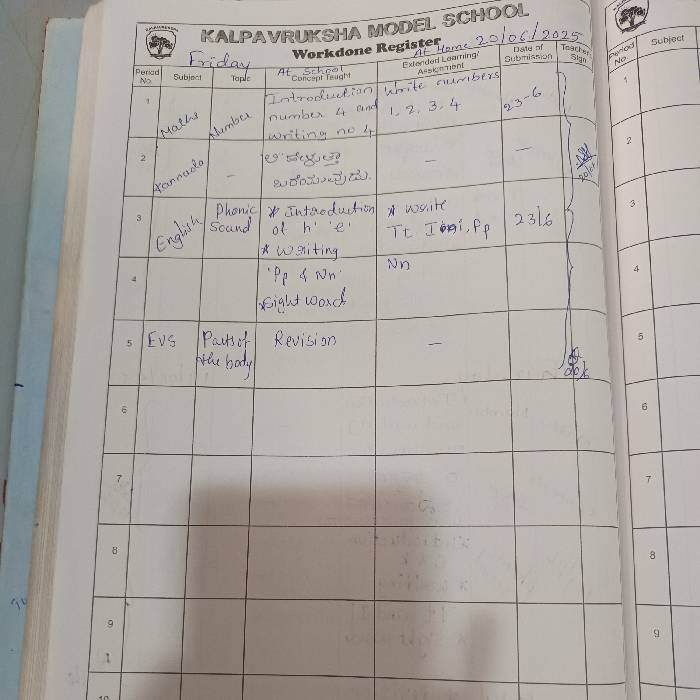 KALPAVRUKSHA MODEL SCHOOL
Workdone Register
Friday
At School
At Home 20/06/2025
Period No. Subject Topic Concept Taught Extended Learning/ Assignment Date of Submission Teacher Sign
1 Maths Number Introduction number 4 and writing no 4 Write numbers 1, 2, 3, 4 23-6
2 Kannada - ಬರೆಯುವುದು. - -
3 English Phonic Sound * Introduction of 'h' 'e' * Writing * Write Tt Ii, Pp 23/6
4 'Pp & Nn' * Sight word Nn
5 EVS Parts of the body Revision -
6
7
8
9
10
Period No. Subject
1
2
3
4
5
6
7
8
9